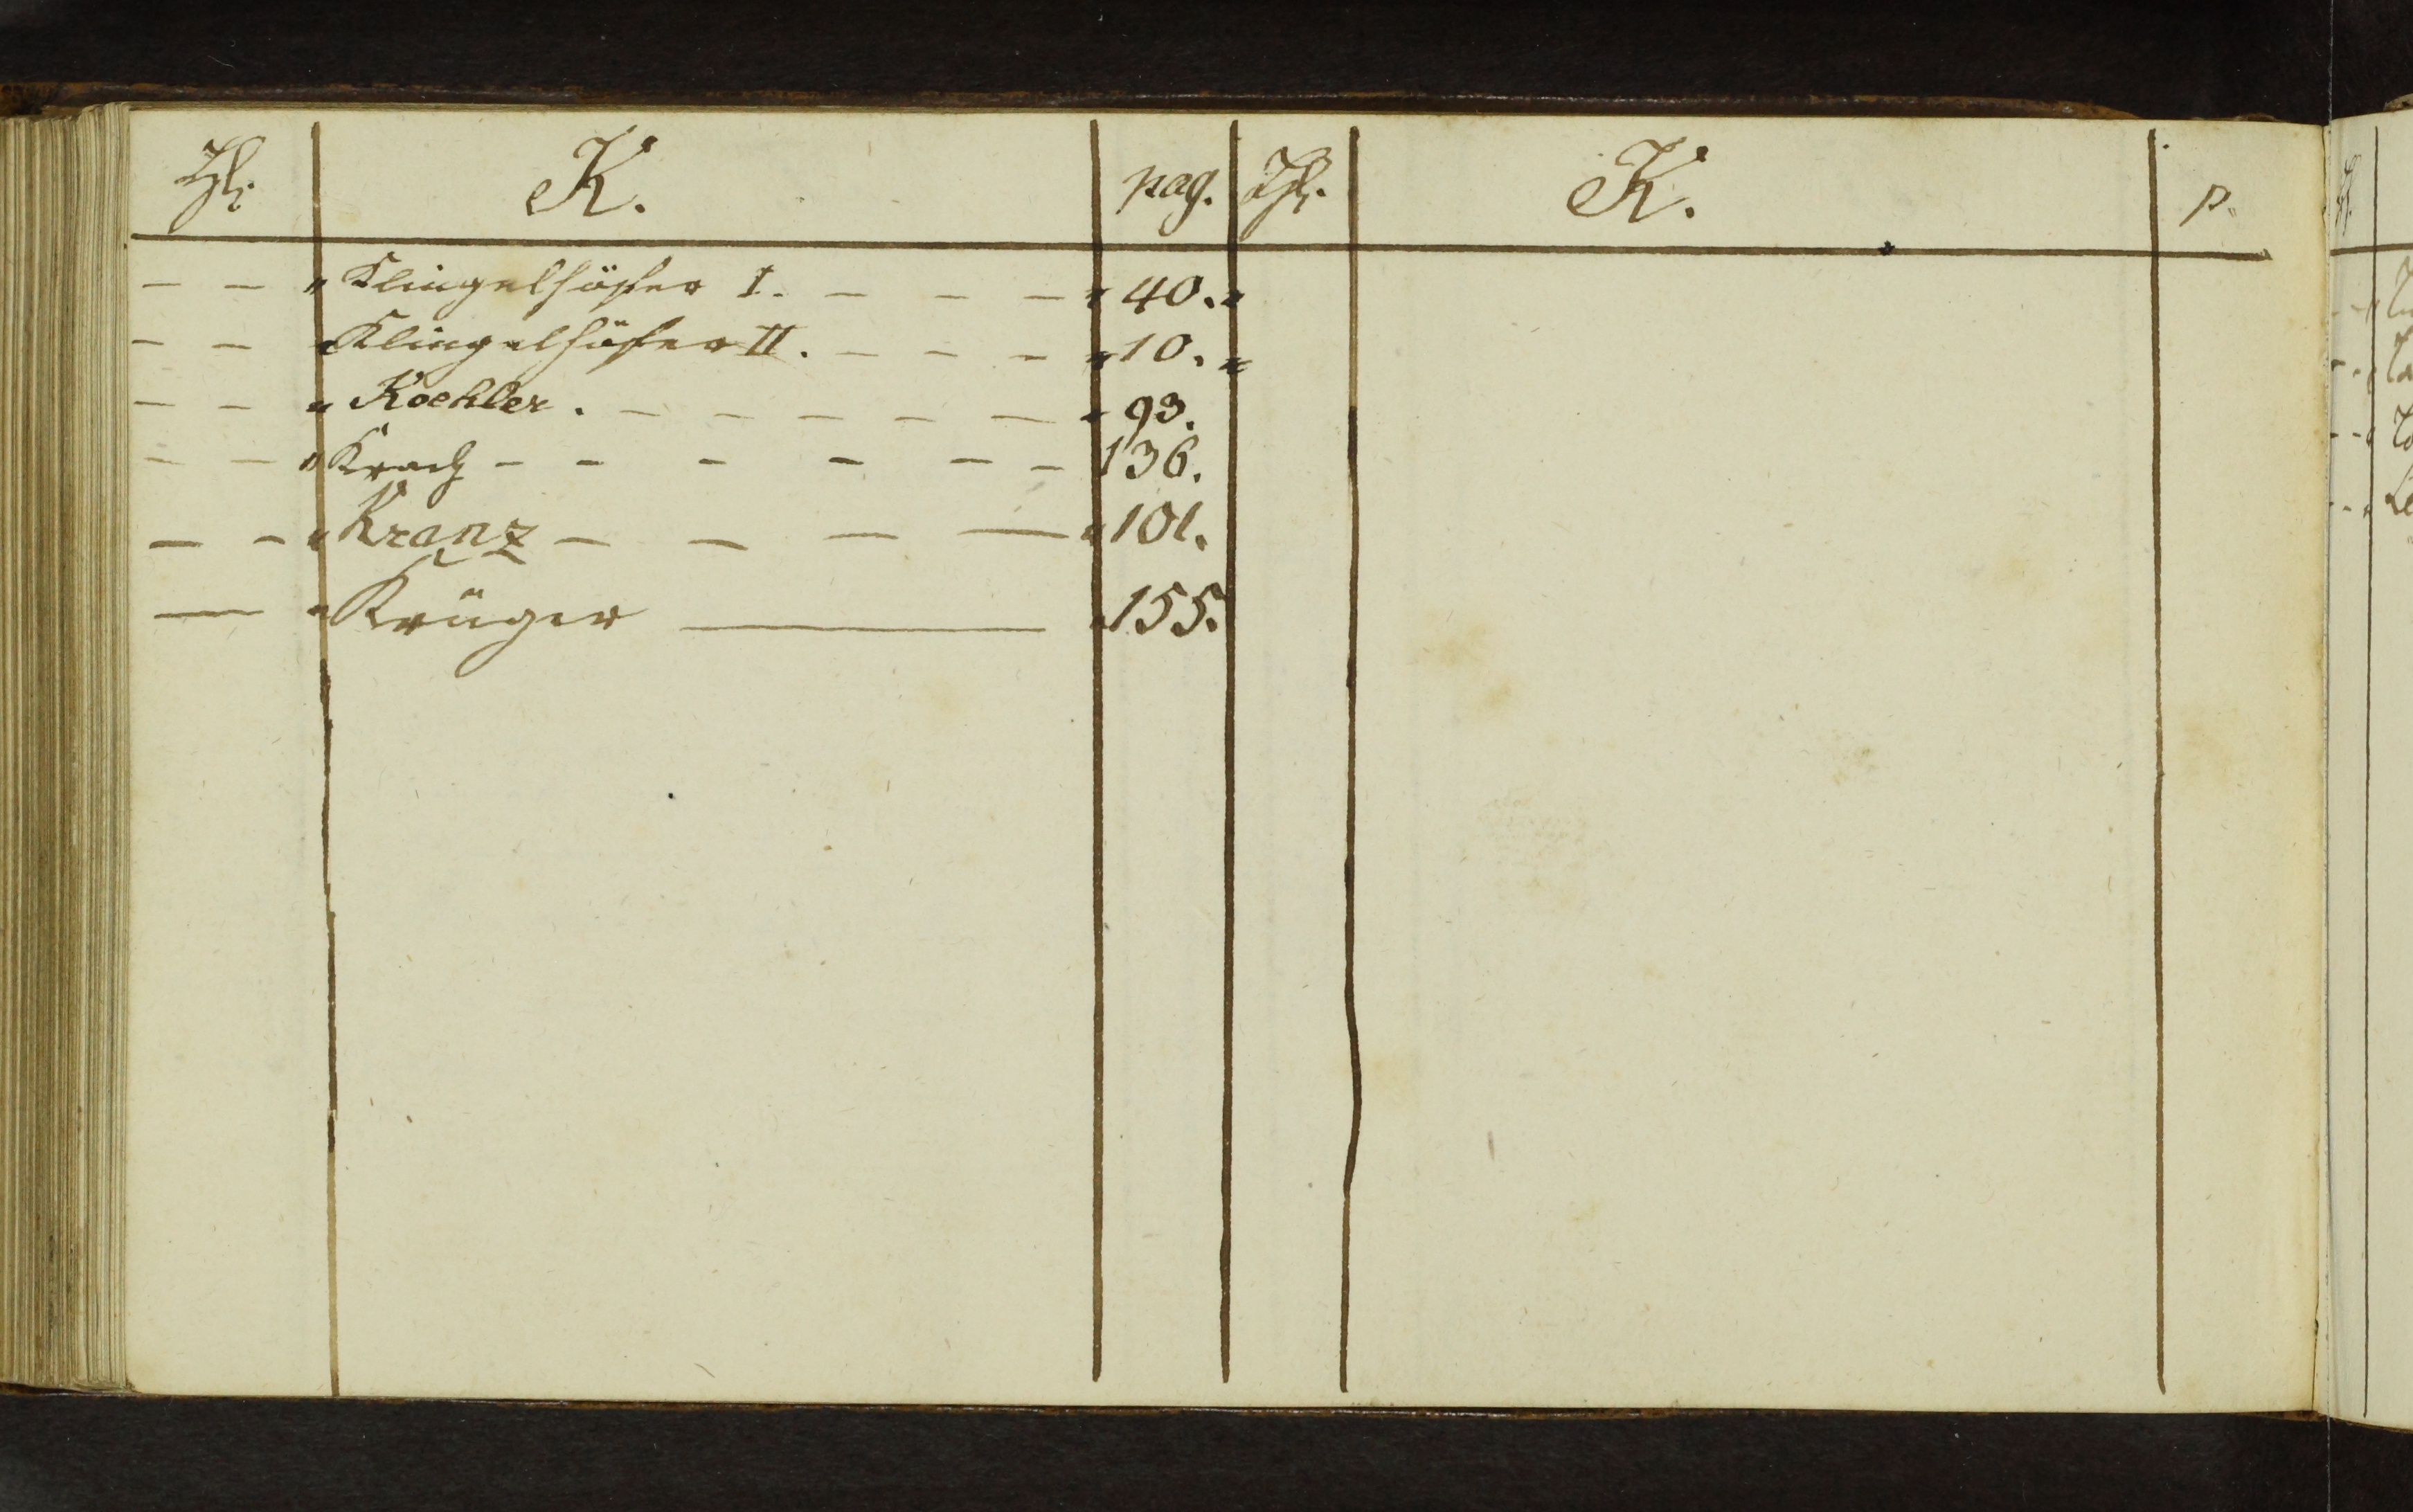 K. pag. K. p.
- - " Klingelhöfer I. - - - " 40. "
- - " Klingelhöfer II. - - - " 10. "
- - " Koehler. - - - - - " 93.
- - " Krach - - - - - - 136.
- - " Kranz - - - - " 101.
- " Krüger - " 155.